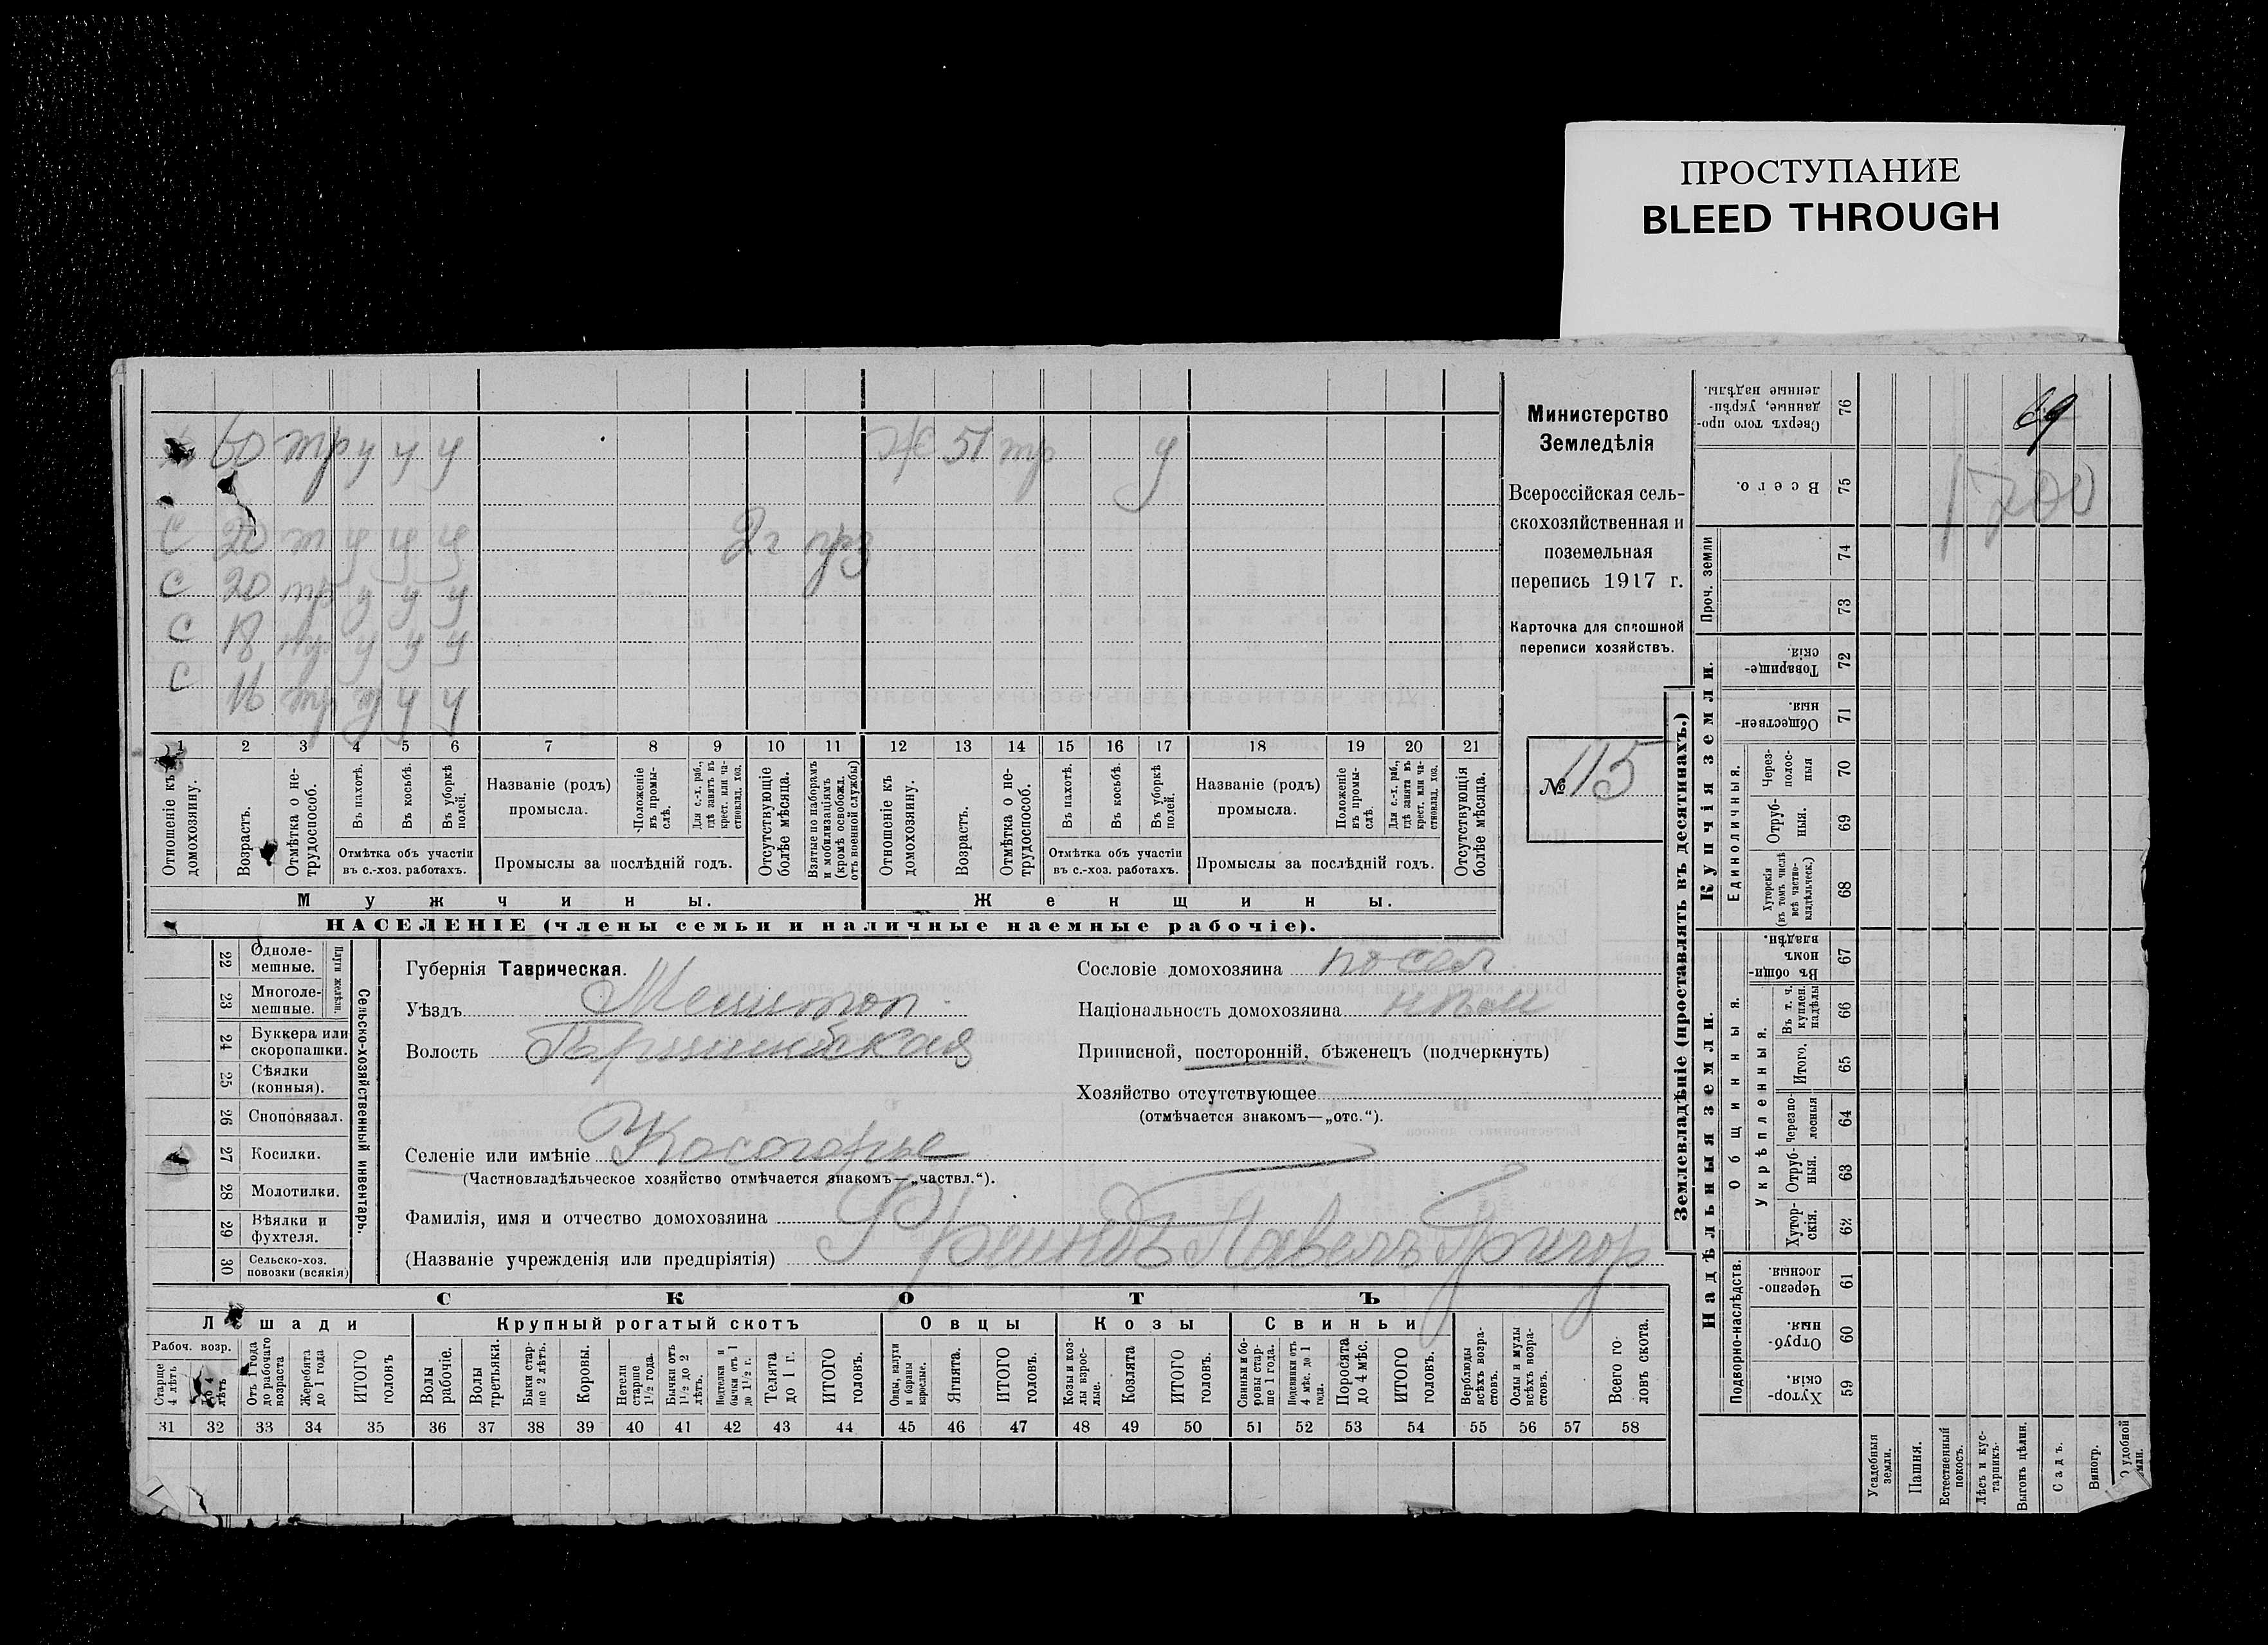 ПРОСТУПАНИЕ
BLEED THROUGH
60 тр у у у Ж 51 тр у
С 20 т у у у 2г
С 20 тр у у у
С 18 тр у у у
С 16 тр у у у
1 2 3 4 5 6 7 8 9 10 11 12 13 14 15 16 17 18 19 20 21
Отношеніе къ домохозяину.
Возрастъ.
Отмѣтка о не-трудоспособ.
Въ пахотѣ.
Въ косьбѣ.
Въ уборкѣ полей.
Отмѣтка объ участіи
въ с.-хоз. работахъ.
Названіе (родъ)
промысла.
Положеніе въ промы-слѣ.
Для с.-х. раб., гдѣ занятъ въ крест. или ча-стновлад. хоз.
Промыслы за послѣдній годъ.
Отсутствующіе болѣе мѣсяца.
Взятые по наборамъ и мобилизаціямъ (кромѣ освобожд. отъ военной службы)
Отношеніе къ домохозяину.
Возрастъ.
Отмѣтка о не-трудоспособ.
Въ пахотѣ.
Въ косьбѣ.
Въ уборкѣ полей.
Отмѣтка объ участіи
въ с.-хоз. работахъ.
Названіе (родъ)
промысла.
Положеніе въ промы-слѣ.
Для с.-х. раб., гдѣ занята въ крест. или ча-стновлад. хоз.
Промыслы за послѣдній годъ.
Отсутствующія болѣе мѣсяца.
Мужчины. Женщины.
НАСЕЛЕНІЕ (члены семьи и наличные наемные рабочіе).
Министерство
Земледѣлія
Всероссійская сель-
скохозяйственная и
поземельная
перепись 1917 г.
Карточка для сплошной
переписи хозяйствъ.
№ 115
22 Одноле-мешные.
23 Многоле-мешные.
Плуги желѣзн.
24 Буккера или скоропашки.
25 Сѣялки (конныя).
26 Сноповязал.
27 Косилки.
28 Молотилки.
29 Вѣялки и фухтеля.
30 Сельско-хоз. повозки (всякія)
Сельско-хозяйственный инвентарь.
Губернія Таврическая.
Уѣздъ Мелитоп
Волость
Селеніе или имѣніе Косогорье
(Частновладѣльческое хозяйство отмѣчается знакомъ—„частвл.“).
Фамилія, имя и отчество домохозяина
(Названіе учрежденія или предпріятія) Павелъ Григор
Сословіе домохозяина посел.
Національность домохозяина
Приписной, посторонній, бѣженецъ (подчеркнуть)
Хозяйство отсутствующее
(отмѣчается знакомъ—„отс.“).
СКОТЪ
Лошади Крупный рогатый скотъ Овцы Козы Свиньи
Рабоч. возр.
Старше 4 лѣтъ
до 4 лѣтъ
Отъ 1 года до рабочаго возраста
Жеребята до 1 года
ИТОГО головъ
Волы рабочіе.
Волы третьяки.
Быки стар-ше 2 лѣтъ.
Коровы.
Нетели старше 1½ года.
Бычки отъ 1½ до 2 лѣтъ.
Подтелки и бычки отъ 1 до 1½ г.
Телята до 1 г.
ИТОГО головъ.
Овцы, валухи и бараны взрослые.
Ягнята.
ИТОГО головъ.
Козы и коз-лы взрос-лые.
Козлята
ИТОГО головъ.
Свиньи и бо-ровы стар-ше 1 года.
Подсвинки отъ 4 мѣс. до 1 года.
Поросята до 4 мѣс.
ИТОГО головъ.
Верблюды всѣхъ возра-стовъ.
Ослы и мулы всѣхъ возра-стовъ.
Всего го-ловъ скота.
31 32 33 34 35 36 37 38 39 40 41 42 43 44 45 46 47 48 49 50 51 52 53 54 55 56 57 58
Землевладѣніе (проставлять въ десятинахъ.)
Надѣльныя земли. Купчія земли.
Проч. земли
Подворно-наслѣдств.
Общинныя.
Укрѣпленныя.
Единоличныя.
Сверхъ того про-данные, укрѣп-ленные надѣлы. 76 69
Всего. 75 1700
74
73
Товарище-скія. 72
Обществен-ныя. 71
Через-полос-ныя 70
Отруб-ныя. 69
Хуторскія (въ томъ числѣ всѣ частно-владѣльческ.) 68
Въ общин-номъ владѣн. 67
Въ т. ч. куплен. надѣлы 66
Итого. 65
Черезпо-лосныя 64
Отруб-ныя. 63
Хутор-скія. 62
Черезпо-лосныя. 61
Отруб-ныя. 60
Хутор-скія. 59
Усадебныя земли.
Пашня.
Естественный покосъ.
Лѣсъ и кус-тарникъ.
Выгонъ цѣлин.
Садъ.
Виногр.
удобной